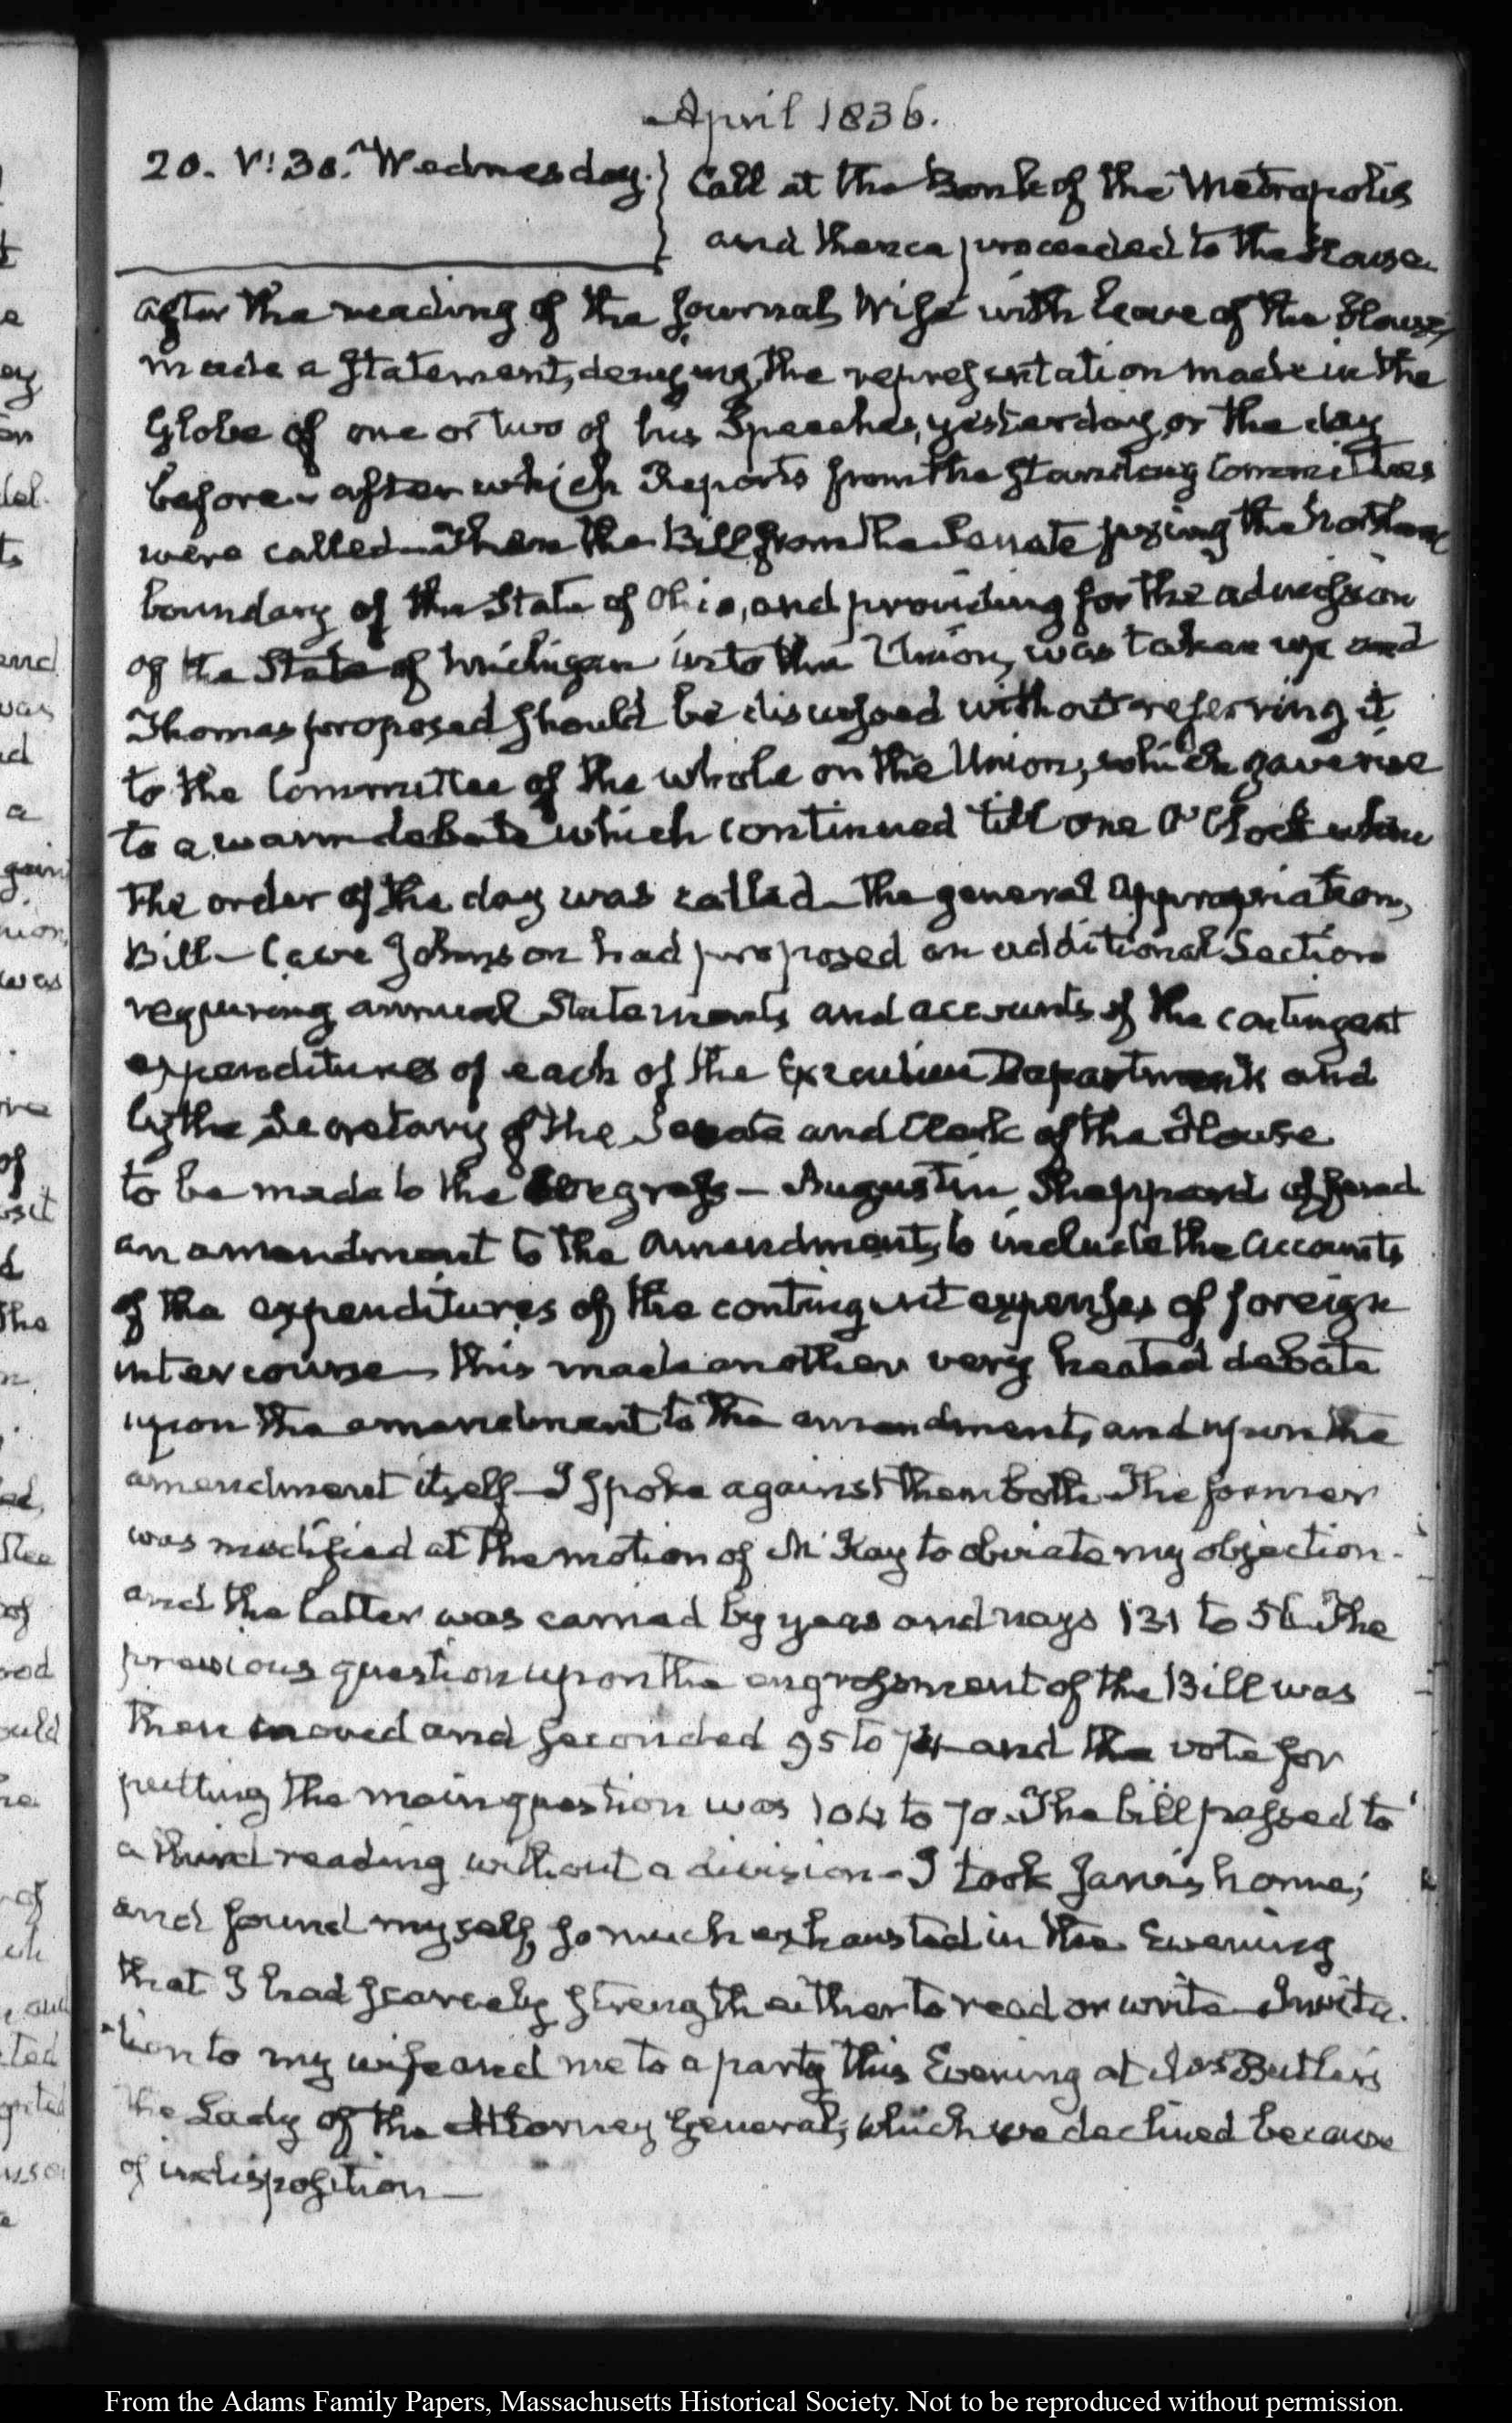 April 1836.
20. V:30. Wednesday. } Call at the Bank of the Metropolis
and thence proceeded to the House.
after the reading of the Journal, Wise with leave of the House,
made a statement, denying the representation made in the
Globe of one or two of his Speeches, yesterday, or the day
before – after which Reports from the Standing Committees
were called – Then the Bill from the Senate fixing the Northern
boundary of the State of Ohio, and providing for the admission
of the State of Michigan into the Union, was taken up and
Thomas proposed should be discussed without referring it
to the Committee of the whole on the Union, which gave rise
to a warm debate which continued till one O'Clock when
the order of the day was called – the general Appropriation,
Bill – Cave Johnson had proposed an additional Section
requiring annual Statements and accounts of the contingent
expenditures of each of the Executive Departments and
by the Secretary of the Senate and Clerk of the House
to be made to the Congress – Augustin Sheppard offered
an amendment to the amendment, to include the accounts
of the expenditures of the contingent expenses of foreign
intercourse – this made another very heated debate
upon the amendment to the amendment, and upon the
amendment itself – I spoke against them both. The former
was modified at the motion of McKay to obviate my objection –
and the latter was carried by yeas and nays 131 to 56. The
previous question upon the engrossment of the Bill was
then moved and seconded 95 to 74 – and the vote for
putting the main question was 104 to 70. The bill passed to
a third reading without a division – I took Janvis home;
and found myself so much exhausted in the Evening
that I had scarcely strength either to read or write – Invita-
-tion to my wife and me to a party this Evening at Mrs Butler's
the Lady of the Attorney General; which we declined because
of indisposition –
From the Adams Family Papers, Massachusetts Historical Society. Not to be reproduced without permission.